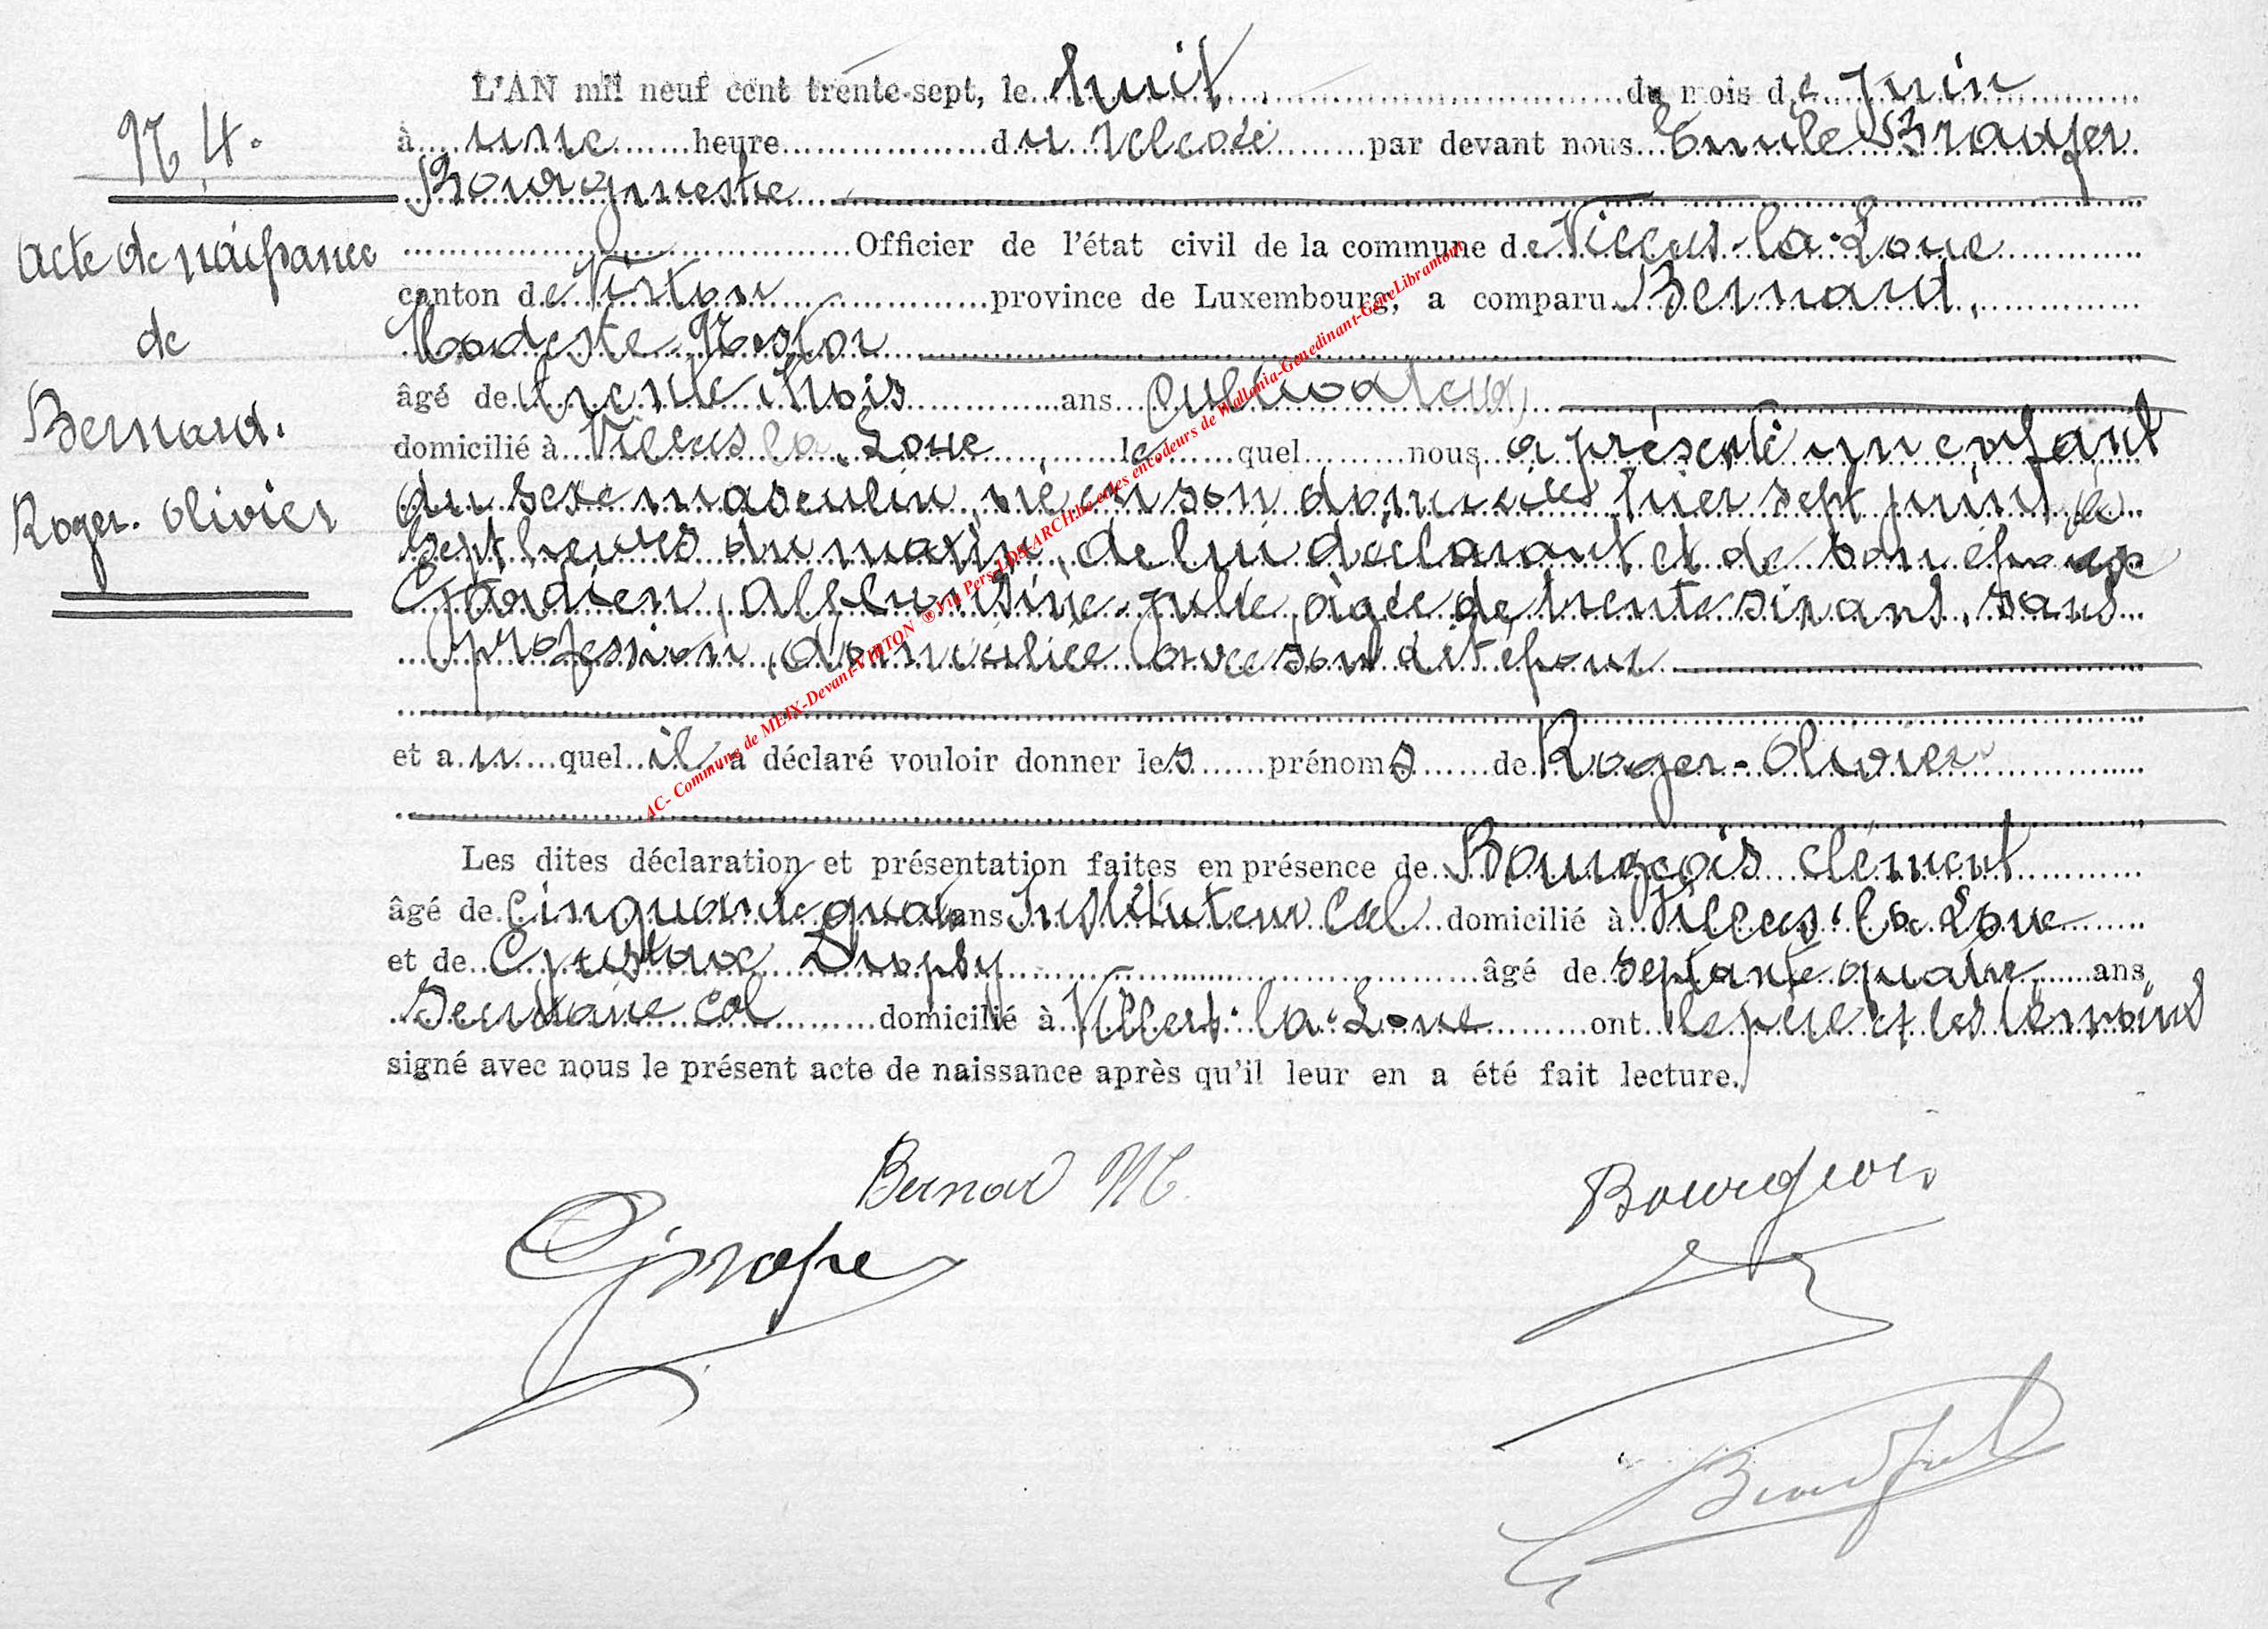 L'AN mil neuf cent trente-sept, le huit du mois de Juin
N 4.
à une heure du relevée par devant nous Emile
Bourgmestre
Acte de naissance
Officier de l'état civil de la commune de Villers-la-Loue
canton de Virton province de Luxembourg, a comparu Bernard,
de
Modeste Nestor
âgé de trente trois ans Cultivateur,
Bernard.
domicilié à Villers la Loue, lequel nous a présenté un enfant
du sexe masculin, né en son domicile hier sept juin à
Roger. Olivier
sept heures du matin, de lui déclarant et de son épouse
Julie, âgée de trente six ans, sans
profession, domiciliée avec son dit époux
et auquel il a déclaré vouloir donner les prénoms de Roger-Olivier
Les dites déclaration et présentation faites en présence de Bourgeois Clément
âgé de cinquante quatre ans Instituteur Cal domicilié à Villers-la-Loue
et de âgé de septante quatre ans
Secrétaire cal domicilié à Villers-la-Loue ont le père et les témoins
signé avec nous le présent acte de naissance après qu'il leur en a été fait lecture.
AC- Commune de MEIX-Devant-VIRTON ® Via Pers-LDS-ARCH.be et les encodeurs de Wallonia-Genedinant-GeneLibramont
Bernard M.
Bourgeois